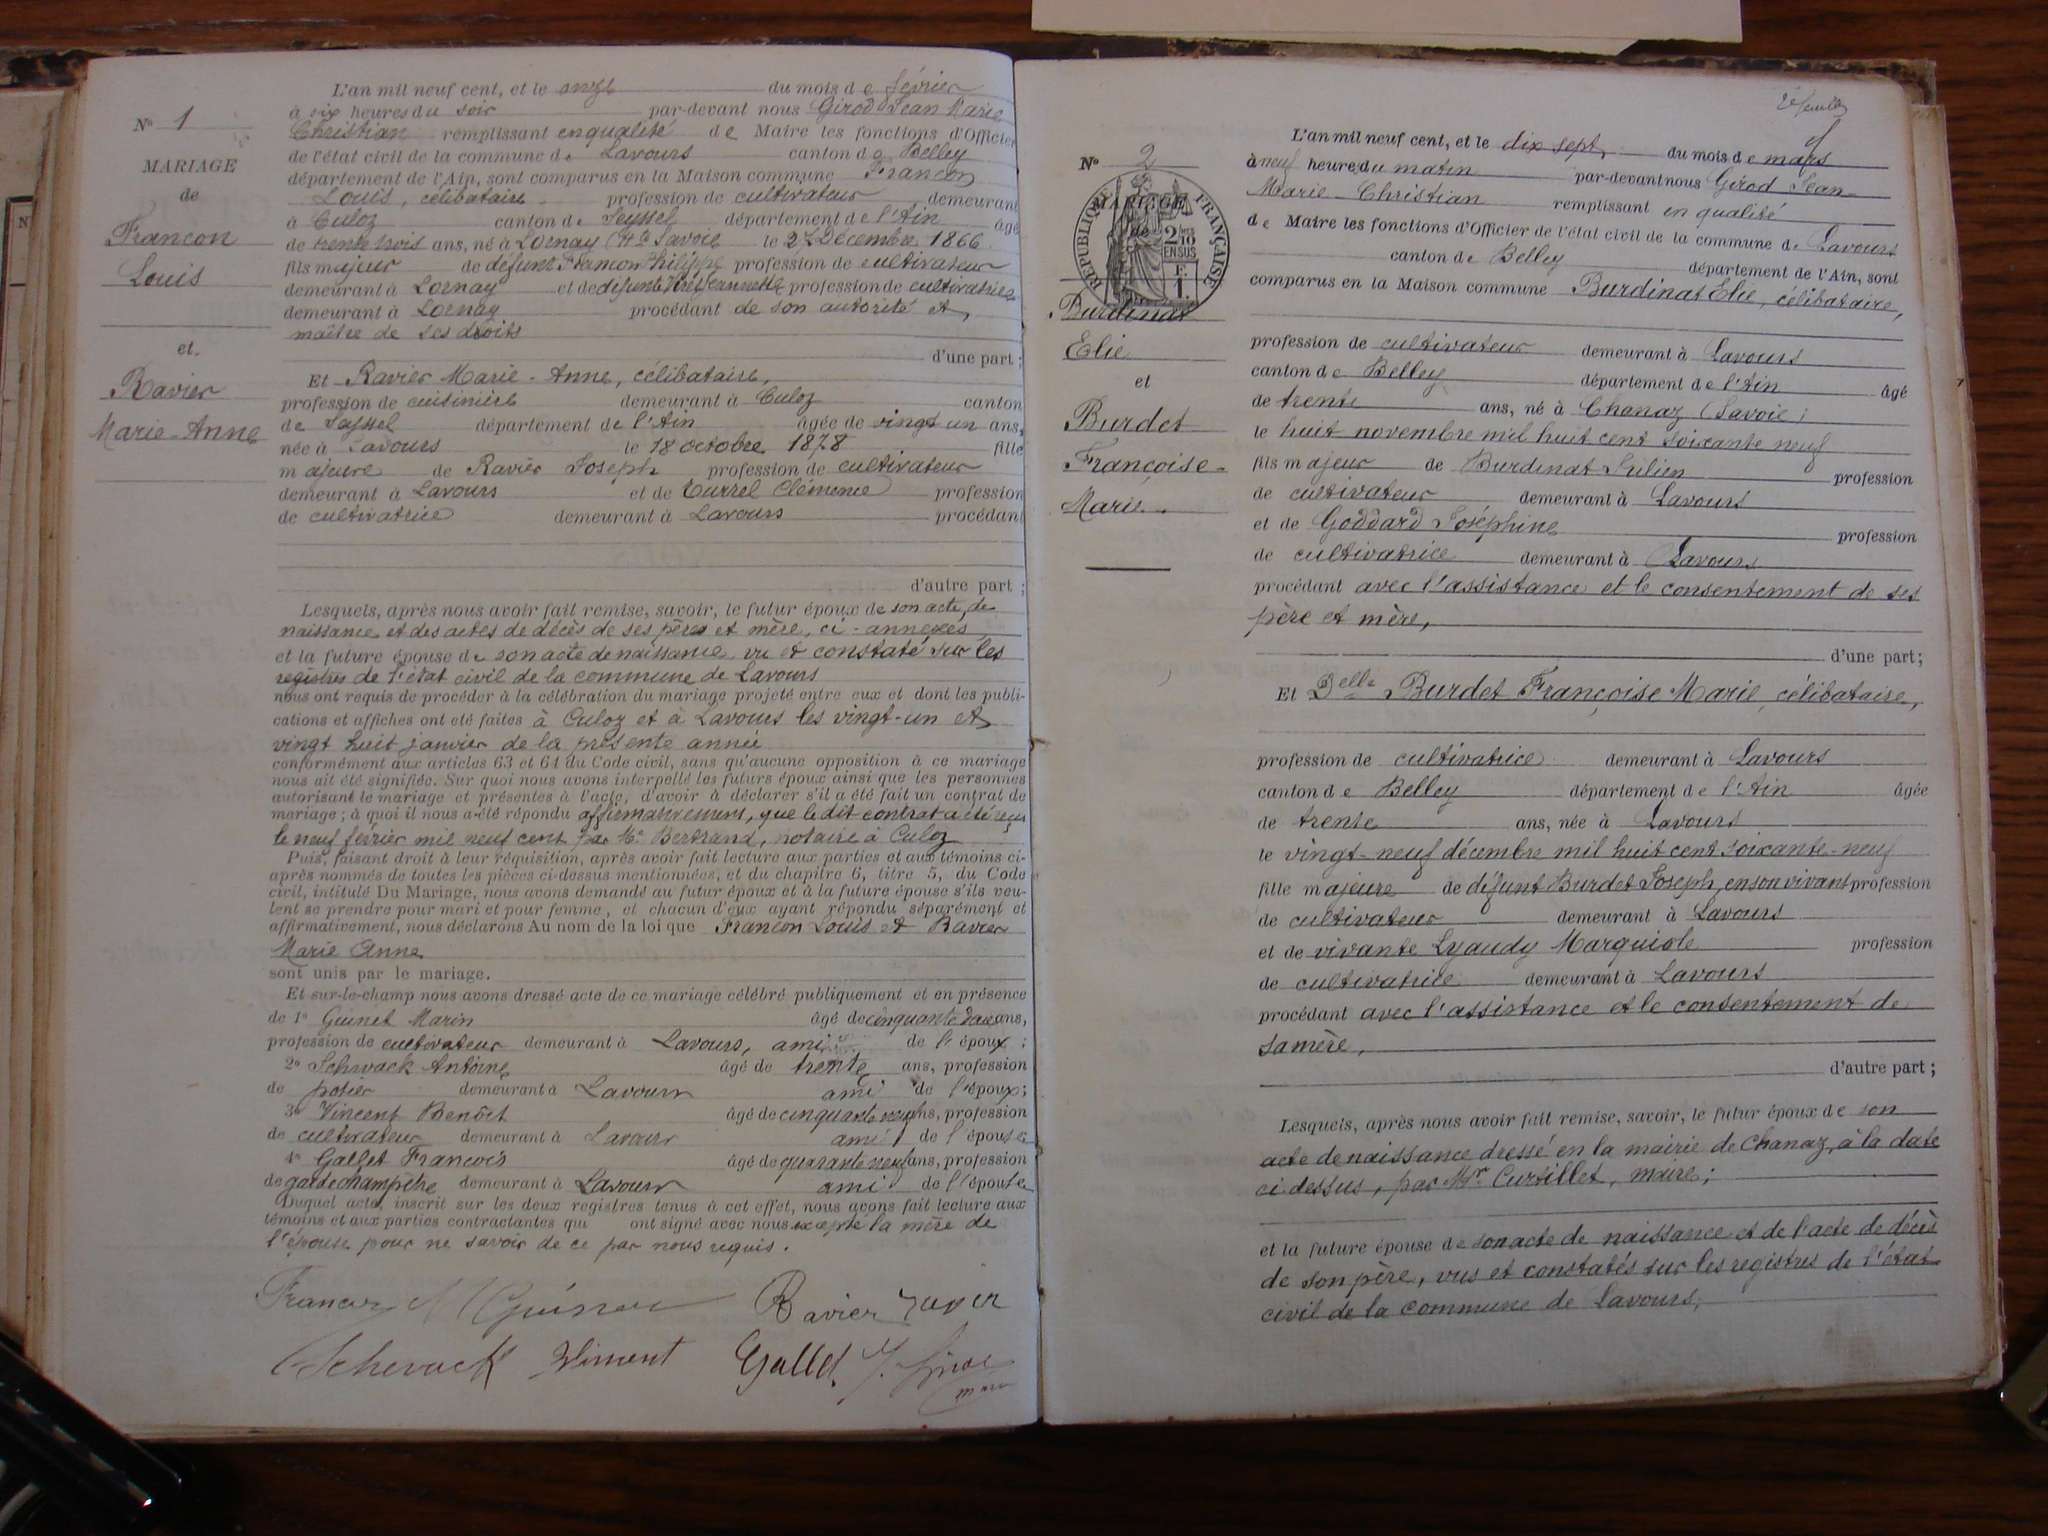 L'an mil neuf cent, et le onze du mois de février
à six heures du soir par-devant nous Girod Jean Marie
Christian remplissant en qualité de Maire les fonctions d'Officier
de l'état civil de la commune de Lavours canton de Belley
département de l'Ain, sont comparus en la Maison commune Francon
Louis, célibataire profession de cultivateur demeurant
à Culoz canton de Seyssel département de l'Ain âgé
de trente trois ans, né à Lornay (Hte Savoie le 27 Décembre 1866
fils majeur de défunt Francon Philippe profession de cultivateur
demeurant à Lornay et de défunte Jeannette profession de cultivatrice
demeurant à Lornay procédant de son autorité et
maître de ses droits
d'une part ;
Et Ravier Marie-Anne, célibataire,
profession de cuisinière demeurant à Culoz canton
de Seyssel département de l'Ain âgée de vingt un ans,
née à Lavours le 18 octobre 1878 fille
majeure de Ravier Joseph profession de cultivateur
demeurant à Lavours et de Turrel Clémence profession
de cultivatrice demeurant à Lavours procédant
d'autre part ;
Lesquels, après nous avoir fait remise, savoir, le futur époux de son acte de
naissance et des actes de décès de ses père et mère, ci-annexés
et la future épouse de son acte de naissance vu et constaté sur les
registres de l'état civil de la commune de Lavours
nous ont requis de procéder à la célébration du mariage projeté entre eux et dont les publi-
cations et affiches ont été faites à Culoz et à Lavours les vingt-un et
vingt huit janvier de la présente année
conformément aux articles 63 et 64 du Code civil, sans qu'aucune opposition à ce mariage
nous ait été signifiée. Sur quoi nous avons interpellé les futurs époux ainsi que les personnes
autorisant le mariage et présentes à l'acte, d'avoir à déclarer s'il a été fait un contrat de
mariage ; à quoi il nous a été répondu affirmativement, que le dit contrat a été reçu
le neuf février mil neuf cent par Me Bertrand, notaire à Culoz
Puis, faisant droit à leur réquisition, après avoir fait lecture aux parties et aux témoins ci-
après nommés de toutes les pièces ci-dessus mentionnées, et du chapitre 6, titre 5, du Code
civil, intitulé Du Mariage, nous avons demandé au futur époux et à la future épouse s'ils veu-
lent se prendre pour mari et pour femme, et chacun d'eux ayant répondu séparément et
affirmativement, nous déclarons Au nom de la loi que Francon Louis et Ravier
Marie Anne
sont unis par le mariage.
Et sur-le-champ nous avons dressé acte de ce mariage célébré publiquement et en présence
de 1° Guinet Marin âgé de cinquante deux ans,
profession de cultivateur demeurant à Lavours, ami de l'époux ;
2° Schwack Antoine âgé de trente ans, profession
de potier demeurant à Lavours ami de l'époux ;
3° Vincent Benoît âgé de cinquante neuf ans, profession
de cultivateur demeurant à Lavours ami de l'épouse
4° Gallet François âgé de quarante neuf ans, profession
de garde champêtre demeurant à Lavours ami de l'épouse
Duquel acte, inscrit sur les deux registres tenus à cet effet, nous avons fait lecture aux
témoins et aux parties contractantes qui ont signé avec nous excepté la mère de
l'épouse pour ne savoir de ce par nous requis.
Francon Ravier
Schevack Gallet
N° 1
MARIAGE
de
Francon
Louis
et
Ravier
Marie-Anne
2e feuille
L'an mil neuf cent, et le dix sept, du mois de mars
à neuf heure du matin par-devant nous Girod Jean-
Marie-Christian remplissant en qualité
de Maire les fonctions d'Officier de l'état civil de la commune de Lavours
canton de Belley département de l'Ain, sont
comparus en la Maison commune Burdinat Elie, célibataire,
profession de cultivateur demeurant à Lavours
canton de Belley département de l'Ain âgé
de trente ans, né à Chanaz (Savoie)
le huit novembre mil huit cent soixante neuf
fils majeur de Burdinat Julien profession
de cultivateur demeurant à Lavours
et de Goddard Joséphine profession
de cultivatrice demeurant à Lavours
procédant avec l'assistance et le consentement de ses
père et mère,
d'une part ;
Et Delle Burdet Françoise Marie, célibataire,
profession de cultivatrice demeurant à Lavours
canton de Belley département de l'Ain âgée
de trente ans, née à Lavours
le vingt-neuf décembre mil huit cent soixante-neuf
fille majeure de défunt Burdet Joseph, en son vivant profession
de cultivateur demeurant à Lavours
et de vivante Lyaudy Marguiole profession
de cultivatrice demeurant à Lavours
procédant avec l'assistance et le consentement de
sa mère,
d'autre part ;
Lesquels, après nous avoir fait remise, savoir, le futur époux de son
acte de naissance dressé en la mairie de Chanaz, à la date
ci dessus, par Mr. Curtillet, maire ;
et la future épouse de son acte de naissance et de l'acte de décès
de son père, vus et constatés sur les registres de l'état
civil de la commune de Lavours,
N° 2
MARIAGE
RÉPUBLIQUE FRANÇAISE
2/10
EN SUS
1 F.
Burdinat
Elie
et
Burdet
Françoise-
Marie